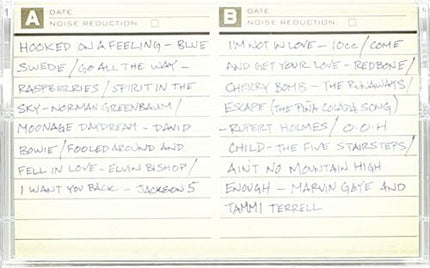 A DATE
NOISE REDUCTION
HOOKED ON A FEELING - BLUE
SWEDE / GO ALL THE WAY -
RASPBERRIES / SPIRIT IN THE
SKY - NORMAN GREENBAUM /
MOONAGE DAYDREAM - DAVID
BOWIE / FOOLED AROUND AND
FELL IN LOVE - ELVIN BISHOP /
I WANT YOU BACK - JACKSON 5
B DATE
NOISE REDUCTION
I'M NOT IN LOVE - 10cc / COME
AND GET YOUR LOVE - REDBONE /
CHERRY BOMB - THE RUNAWAYS /
ESCAPE (THE PIÑA COLADA SONG)
- RUPERT HOLMES / O-O-H
CHILD - THE FIVE STAIRSTEPS /
AIN'T NO MOUNTAIN HIGH
ENOUGH - MARVIN GAYE AND
TAMMI TERRELL